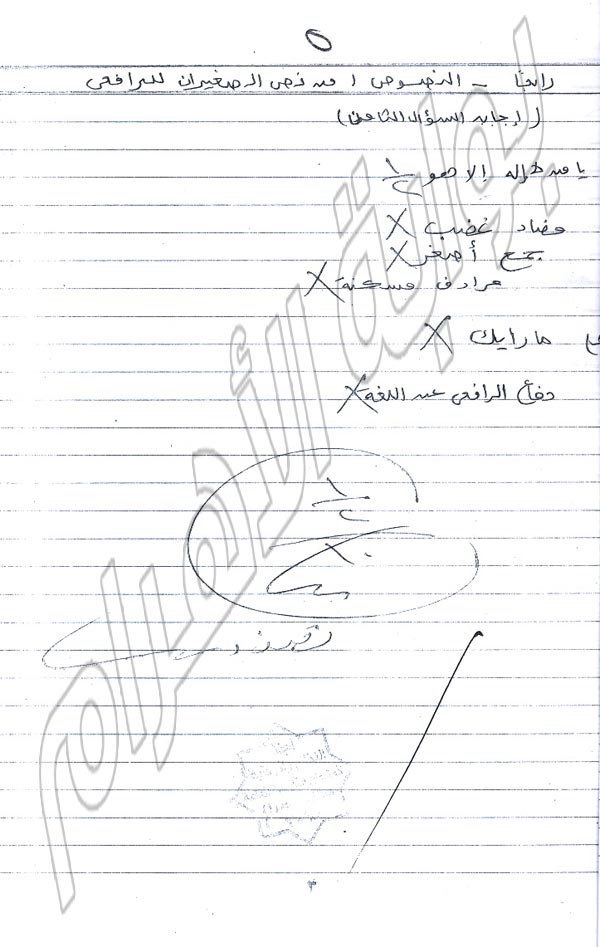 ٥
رابعًا - النصوص ١ من نص الصغيران للرافعى
( إجابه السؤال الثامن )
يا من هو إلا هو ١/٢
مضاد غضب X
جمع أصغر X
مرادف مسكنة X
ما رايك X
دفاع الرافعى عن اللغة X
١/٢
١٠
بوابة الأهرام
٣